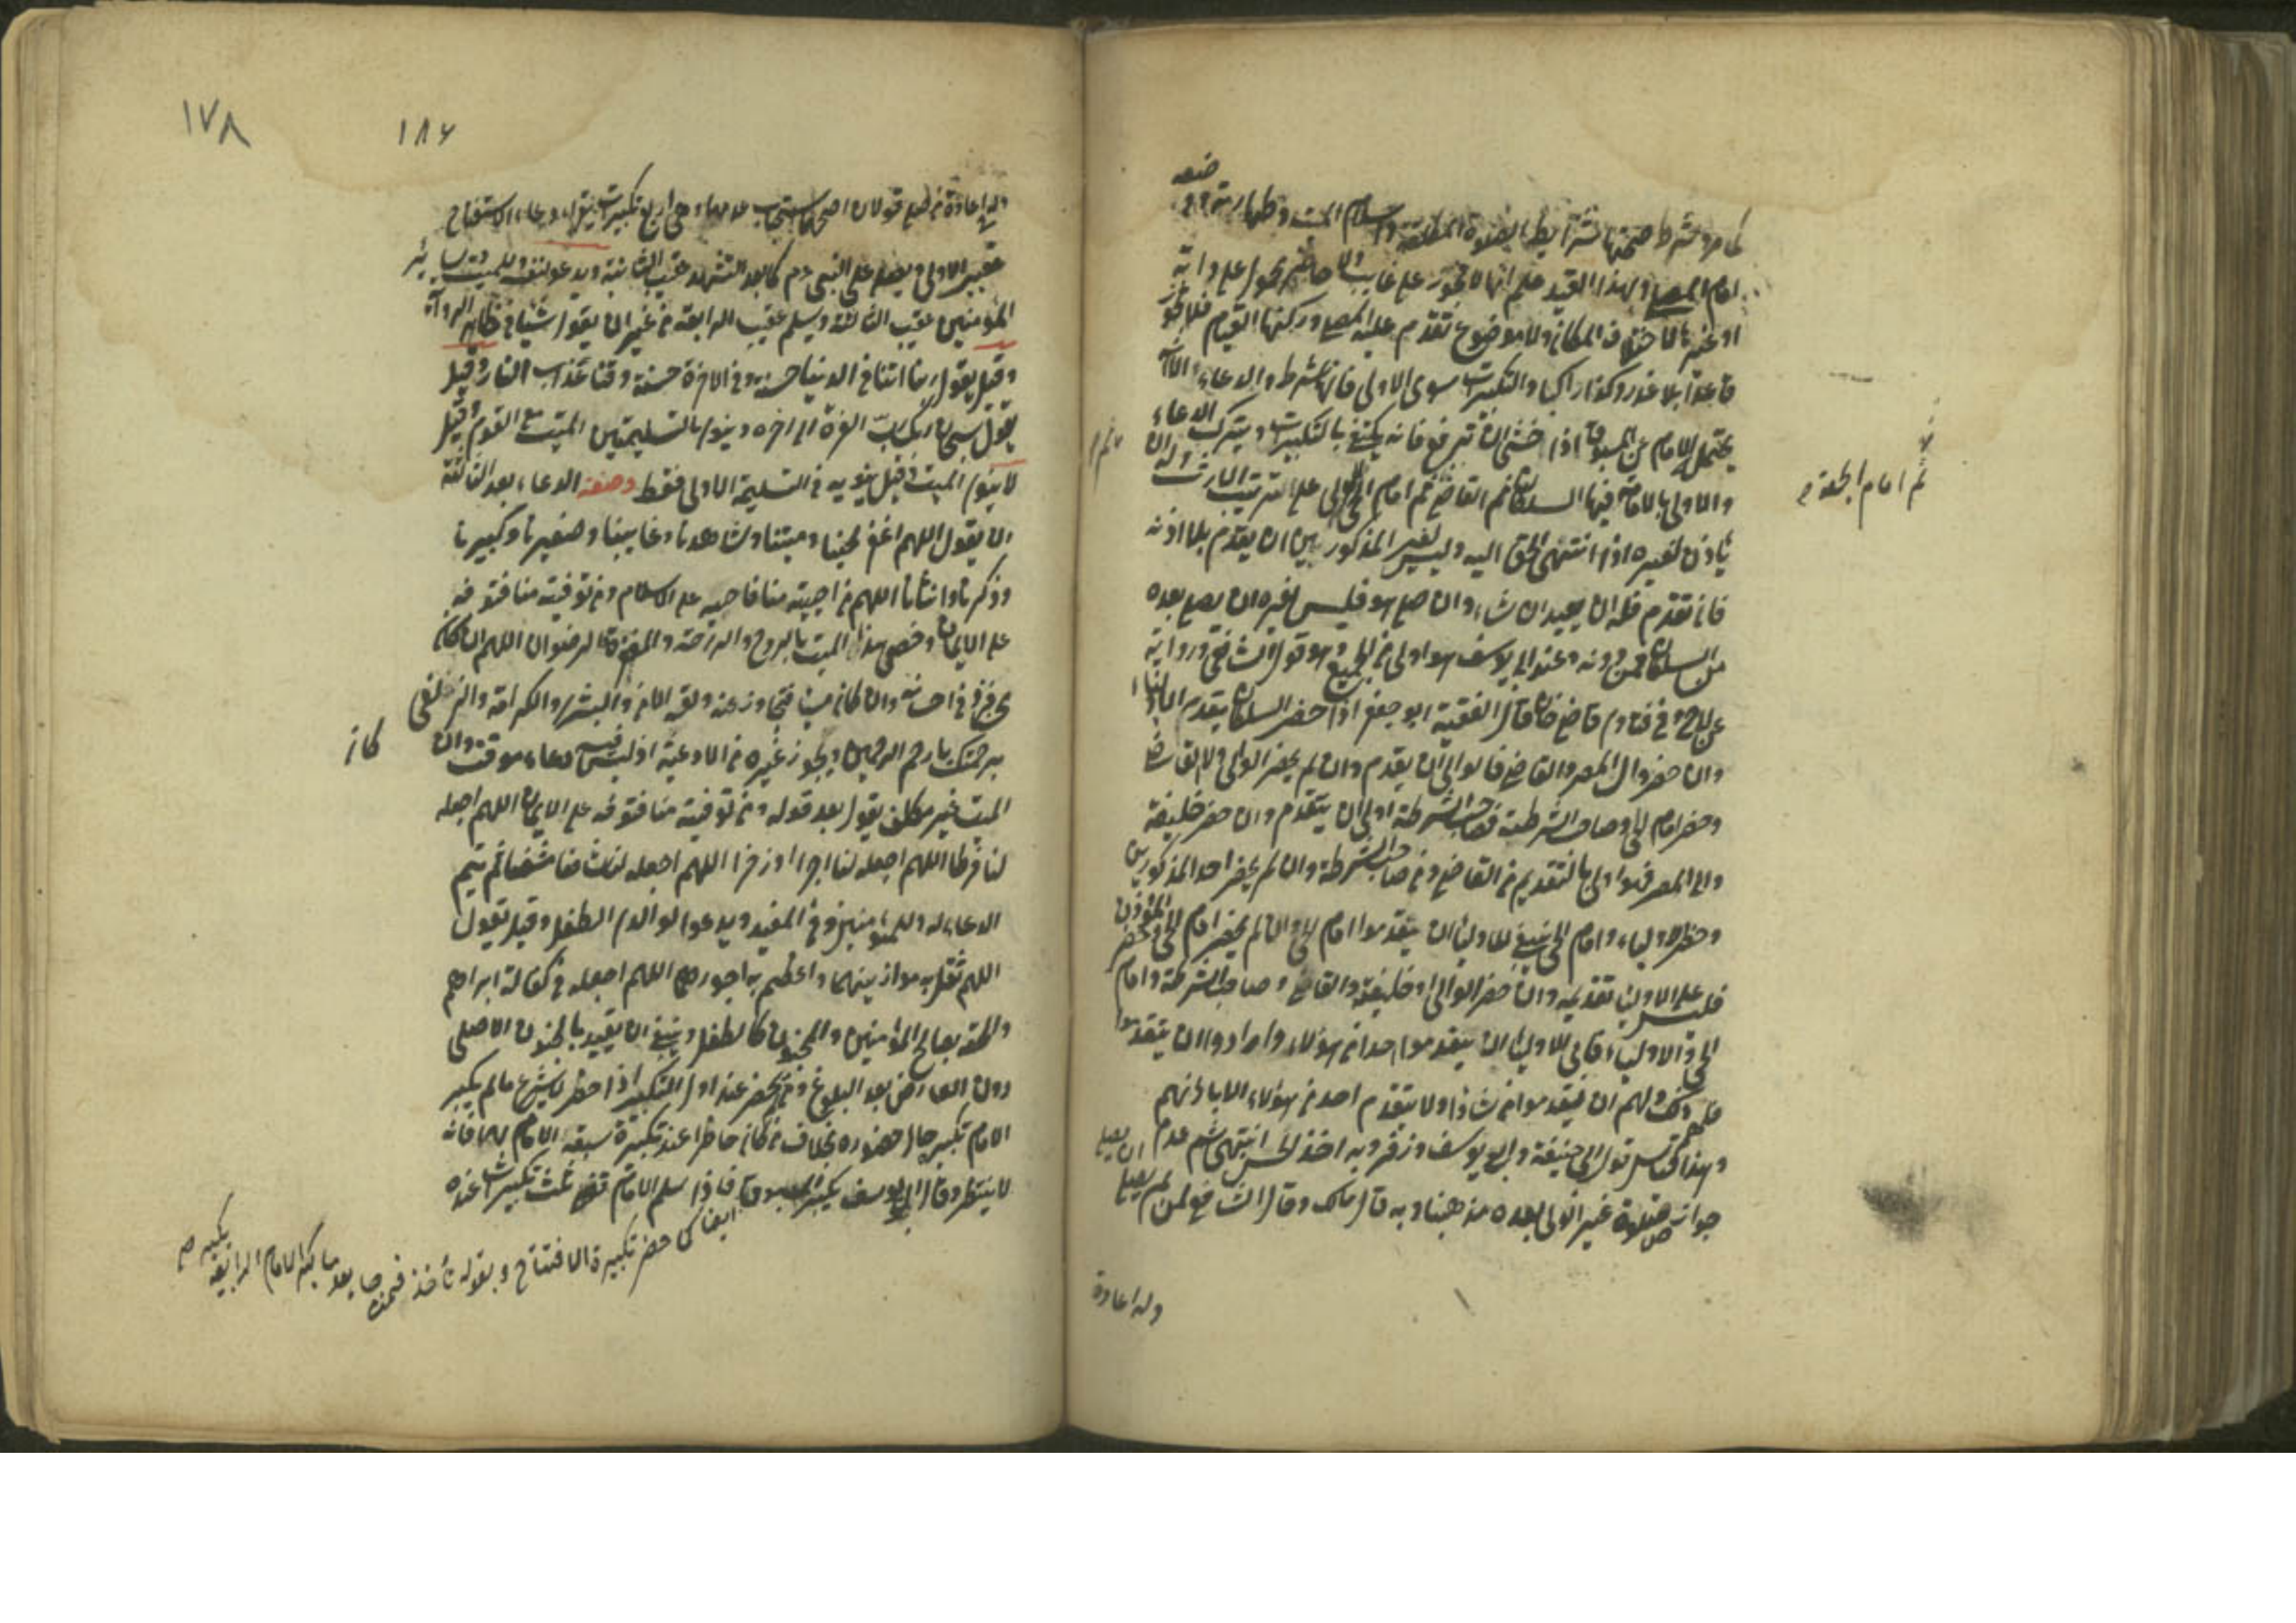 كما مر وشرط صحتها شرائط الصلوة المطلقة واسلام الميت وطهارته ووضعه
امام المصلي ولهذا القيد علم انها لا تجوز على غائب ولا حاضر محمول على دابة
او غيرها لاختلاف المكان ولا موضوع تقدم عليه المصلي وركنها القيام فلا تجوز
قاعدا بلا عذر وكذا راكبا والتكبيرات سوى الاولى فانها شرط والدعاء الا انه
يتحمل الامام عن المسبوق اذا خشي ان ترفع فانه يكتفي بالتكبيرات ويترك الدعاء
والاولى بالامامة فيها السلطان ثم القاضي ثم امام الحي ثم الولي على الترتيب وله ان
ثم امام الجمعة
يأذن لغيره اذا انتهى الحق اليه وليس لغير المذكورين ان يتقدم بلا اذنه
فان تقدم فله ان يعيد ان شاء وان صلى هو فليس لغيره ان يصلي بعده
من السلطان فمن دونه وعند ابي يوسف هو اولى من الجميع وهو قول الشافعي ورواية
عن ابي ح وفي فتاوى قاضي خان قال الفقيه ابو جعفر اذا حضر السلطان يقدم
وان حضر والي المصر والقاضي فالوالي ان يقدم وان لم يحضر الوالي ولا القاضي
وحضر امام الحي وصاحب الشرطة فصاحب الشرطة اولى ان يتقدم وان حضر خليفة
والي المصر فهو اولى بالتقديم من القاضي ومن صاحب الشرطة وان لم يحضر احد المذكورين
وحضر الاولياء وامام الحي ينبغي للاولياء ان يقدموا امام الحي وان لم يحضر امام الحي وحضر المؤذن
فليس على الاولياء تقديمه وان حضر الوالي او خليفته والقاضي وصاحب الشرطة وامام
الحي والاولياء فأبى الاولياء ان يقدموا احدا من هؤلاء وارادوا ان يتقدموا
فلهم ذلك ولهم ان يقدموا من شاؤا ولا يتقدم احد من هؤلاء الا باذنهم
وهذا قياس قول ابي حنيفة وابي يوسف وزفر وبه اخذ الحسن انتهى ثم عدم
جواز صلوة غير الولي بعده مذهبنا وبه قال مالك وقال الشافعي لمن لم يصل ان يصلي
وله اعادة
١٧٨
١٨٦
وله اعادة من صلى قولان اصحهما استحباب عدمها وهي اربع تكبيرات يقرأ دعاء الاستفتاح
عقيب الاولى ويصلي على النبي عم كما بعد التشهد عقيب الثانية ويدعو لنفسه وللميت وسائر
المؤمنين عقيب الثالثة ويسلم عقيب الرابعة من غير ان يقول شيئا في ظاهر الرواية
وقيل يقول ربنا اتنا في الدنيا حسنة وفي الاخرة حسنة وقنا عذاب النار وقيل
يقول سبحان ربك رب العزة الى اخره وينوي بالتسليمتين الميت مع القوم وقيل
لا ينوي الميت وقيل ينويه في التسليمة الاولى فقط وصفة الدعاء بعد الثالثة
ان يقول اللهم اغفر لحينا وميتنا وشاهدنا وغائبنا وصغيرنا وكبيرنا
وذكرنا وانثانا اللهم من احييته منا فاحيه على الاسلام ومن توفيته منا فتوفه
على الايمان وخص هذا الميت بالروح والراحة والمغفرة والرضوان اللهم ان كان
محسنا فزد في احسانه وان كان مسيئا فتجاوز عنه ولقه الامن والبشرى والكرامة والزلفى
برحمتك يا ارحم الراحمين ويجوز غيره من الادعية اذ ليس فيه دعاء موقت وان
كان
الميت غير مكلف يقول بعد قوله ومن توفيته منا فتوفه على الايمان اللهم اجعله
لنا فرطا اللهم اجعله لنا اجرا وذخرا اللهم اجعله لنا شافعا مشفعا ثم يتم
الدعاء له وللمؤمنين وفي المفيد ويدعو لوالدي الطفل وقيل يقول
اللهم ثقل به موازينهما واعظم به اجورهما اللهم اجعله في كفالة ابراهيم
والحقه بصالح المؤمنين والمجنون كالطفل وينبغي ان يقيد بالجنون الاصلي
دون العارض بعد البلوغ ومن لم يحضر عند اول التكبير اذا حضر لا يشرع ما لم يكبر
الامام تكبيرا حال حضوره بخلاف من كان حاضرا عند تكبيرة سبقه الامام بها فانه
لا ينتظر وقال ابي يوسف يكبر المسبوق ايضا كمن حضر تكبيرة الافتتاح وبقوله نأخذ
فاذا سلم الامام قضى ثلث تكبيرات عنده